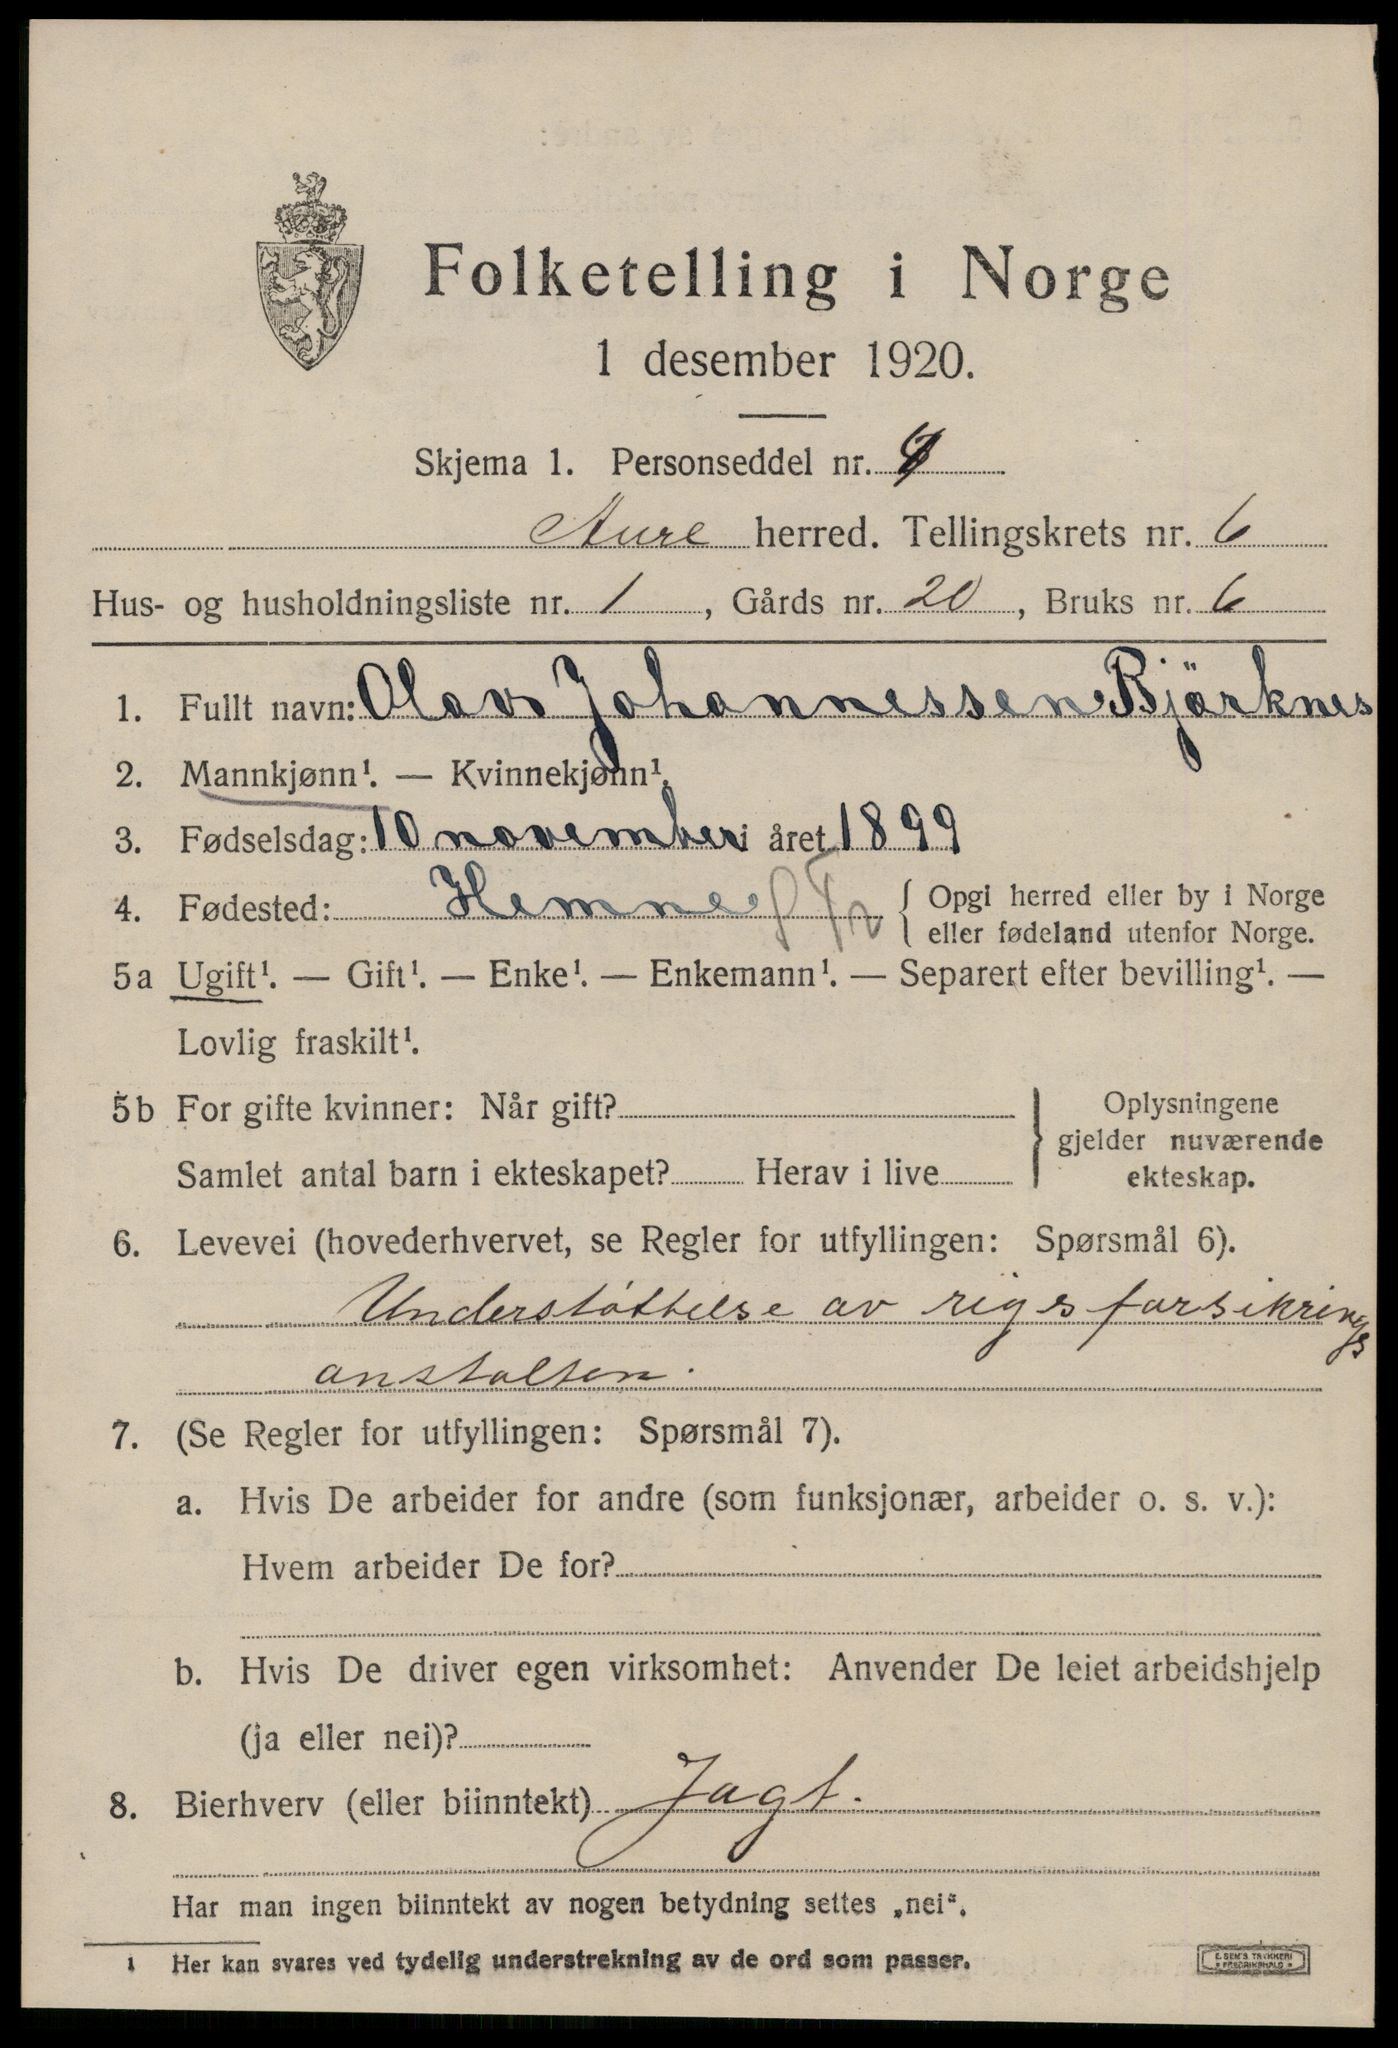 Folketelling i Norge
1 desember 1920.
Skjema 1. Personseddel nr.
Aure herred. Tellingskrets nr. 6
Hus- og husholdningsliste nr. 1, Gårds nr. 20, Bruks nr. 6
1. Fullt navn: Olav Johannessen Björknes
2. Mannkjønn¹. — Kvinnekjønn¹.
3. Fødselsdag: 10 november i året 1899
4. Fødested: Hemne S Tr { Opgi herred eller by i Norge
eller fødeland utenfor Norge.
5a Ugift¹. — Gift¹. — Enke¹. — Enkemann¹. — Separert efter bevilling¹. —
Lovlig fraskilt¹.
5b For gifte kvinner: Når gift? } Oplysningene
gjelder nuværende
Samlet antal barn i ekteskapet? Herav i live ekteskap.
6. Levevei (hovederhvervet, se Regler for utfyllingen: Spørsmål 6).
Understøttelse av rigsforsikrings
anstalten.
7. (Se Regler for utfyllingen: Spørsmål 7).
a. Hvis De arbeider for andre (som funksjonær, arbeider o. s. v.):
Hvem arbeider De for?
b. Hvis De driver egen virksomhet: Anvender De leiet arbeidshjelp
(ja eller nei)?
8. Bierhverv (eller biinntekt) Jagt.
Har man ingen biinntekt av nogen betydning settes „nei“.
1 Her kan svares ved tydelig understrekning av de ord som passer.
E. SEM'S TRYKKERI
FREDRIKSHALD